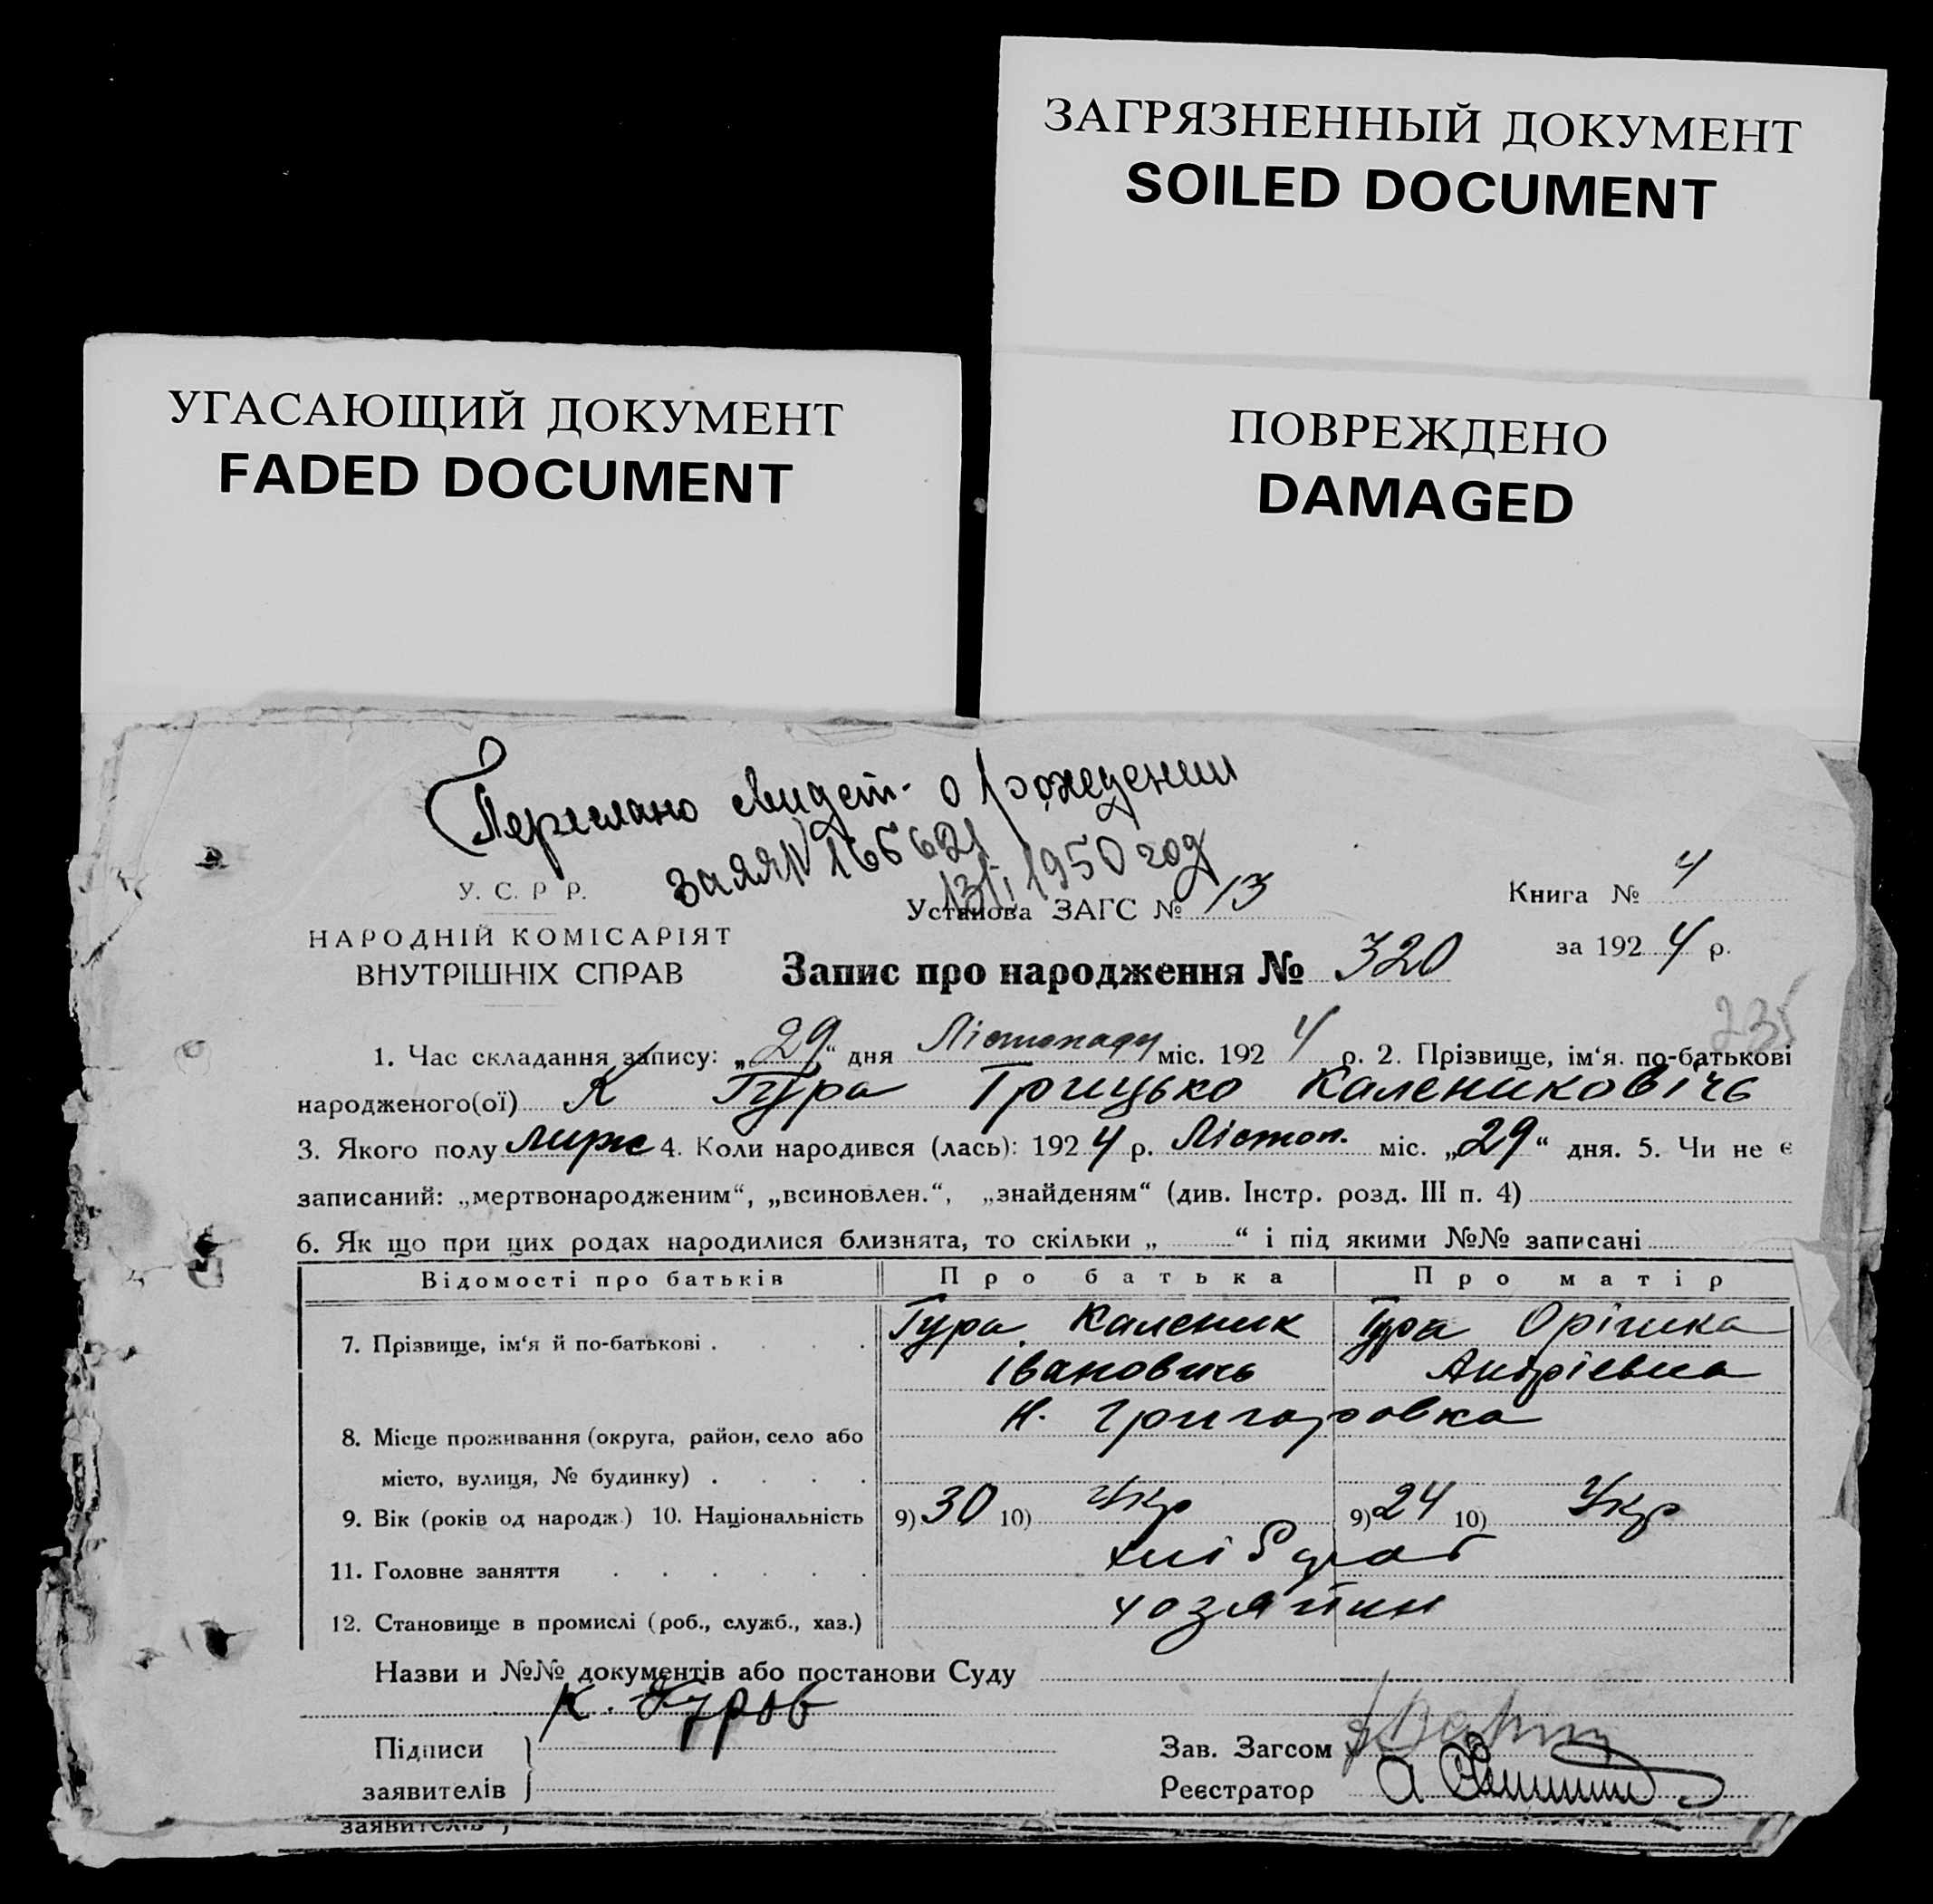 ЗАГРЯЗНЕННЫЙ ДОКУМЕНТ
SOILED DOCUMENT
УГАСАЮЩИЙ ДОКУМЕНТ
FADED DOCUMENT
ПОВРЕЖДЕНО
DAMAGED
Переслано свидет. о рождении
1950 год
У. С. Р Р.
НАРОДНІЙ КОМІСАРІЯТ
ВНУТРІШНІХ СПРАВ
Установа ЗАГС № 13
Книга № 4
за 1924 р.
Запис про народження № 320
235
1. Час складання запису: „29“ дня Лістопаду міс. 1924 р. 2. Прізвище, ім‘я. по-батькові
народженого(ої) К Гура Грицько Калениковічь
3. Якого полу 4. Коли народився (лась): 1924 р. Лістоп. міс. „29“ дня. 5. Чи не є
записаний: „мертвонародженим“, „всиновлен.“, „знайденям“ (див. Інстр. розд. III п. 4)
6. Як що при цих родах народилися близнята, то скільки „ “ і під якими №№ записані
Відомості про батьків Про батька Про матір
7. Прізвище, ім‘я й по-батькові . . . . Гура Каленик Гура Орішка
Івановичь Андріевна
Н. Григоровка
8. Місце проживання (округа, район, село або
місто, вулиця, № будинку) . . . .
9. Вік (років од народж.) 10. Національність 9) 30 10) Укр 9) 24 10) Укр
11. Головне заняття . . . . . . хлібороб
12. Становище в промислі (роб., служб., хаз.) хозяйин
Назви и №№ документів або постанови Суду
Підписи
заявителів
Зав. Загсом
Реєстратор
заявителів